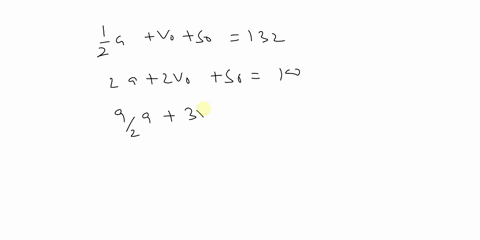 1/2 a + v₀ + s₀ = 132
2a + 2v₀ + s₀ = 100
9/2 a + 3v